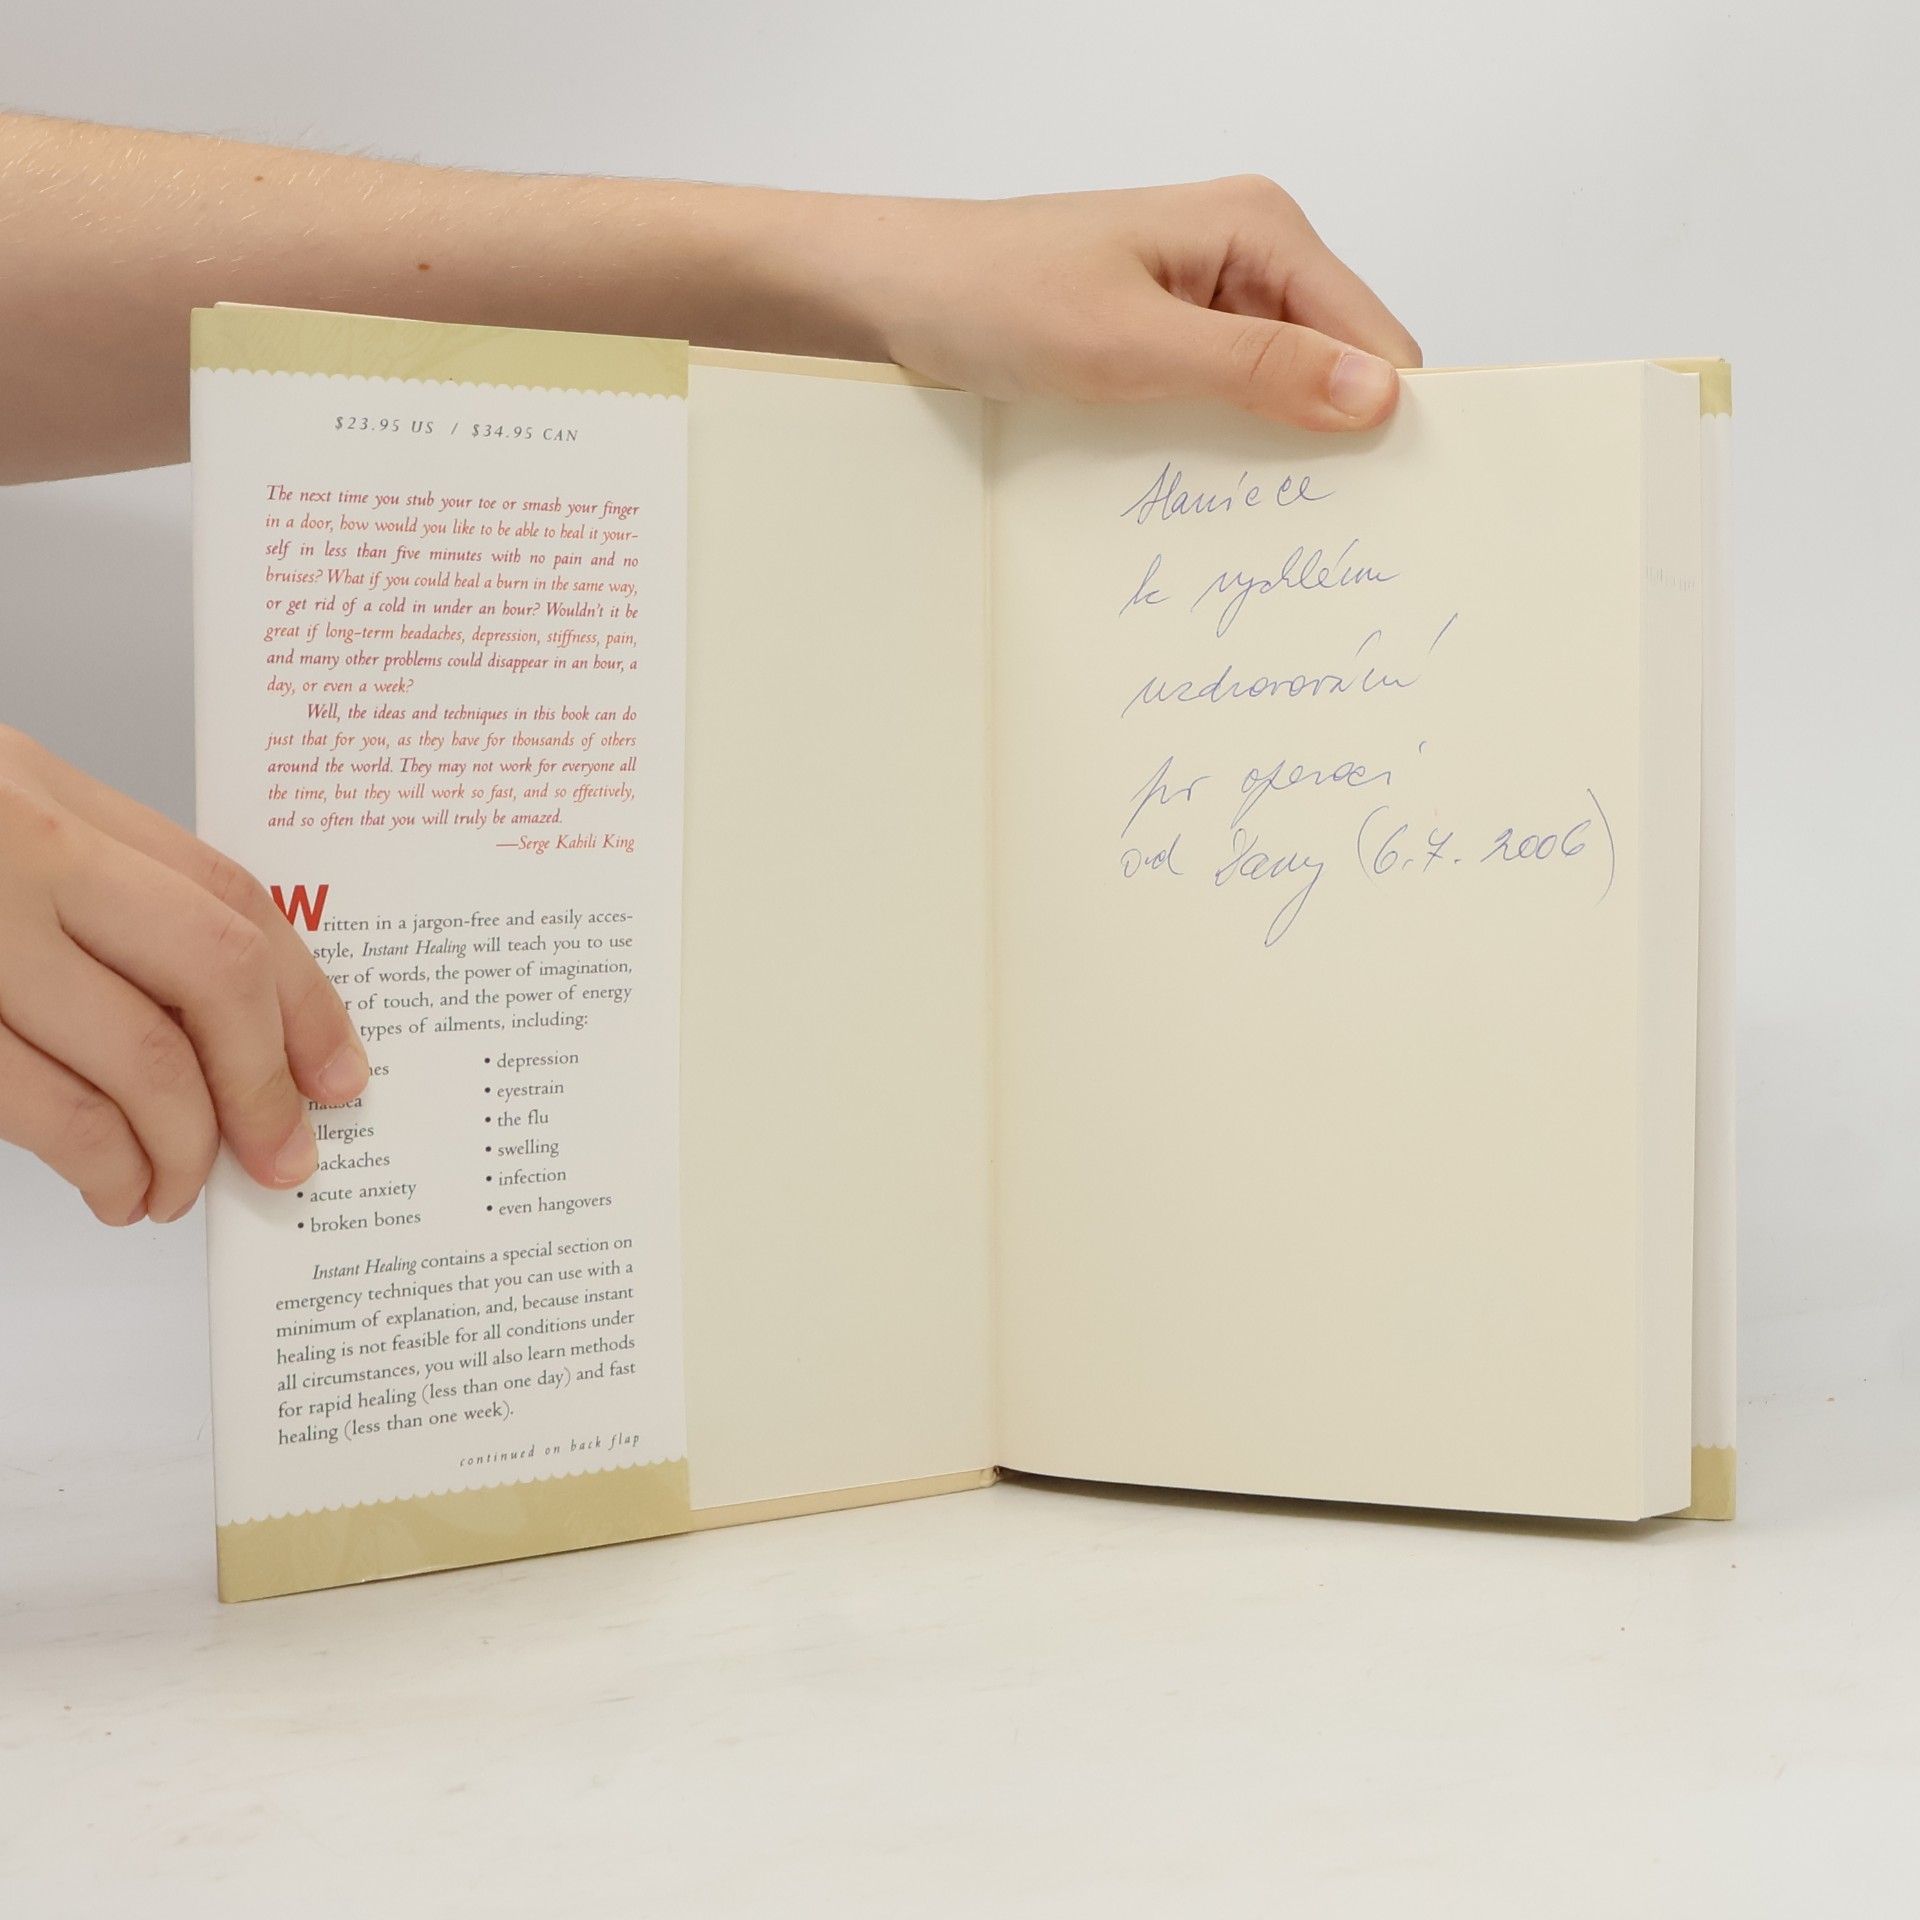 $23.95 US / $34.95 CAN
The next time you stub your toe or smash your finger
in a door, how would you like to be able to heal it your-
self in less than five minutes with no pain and no
bruises? What if you could heal a burn in the same way,
or get rid of a cold in under an hour? Wouldn't it be
great if long-term headaches, depression, stiffness, pain,
and many other problems could disappear in an hour, a
day, or even a week?
Well, the ideas and techniques in this book can do
just that for you, as they have for thousands of others
around the world. They may not work for everyone all
the time, but they will work so fast, and so effectively,
and so often that you will truly be amazed.
—Serge Kahili King
Written in a jargon-free and easily acces-
style, Instant Healing will teach you to use
of words, the power of imagination,
of touch, and the power of energy
types of ailments, including:
nausea
allergies
backaches
• acute anxiety
• broken bones
• depression
• eyestrain
• the flu
• swelling
• infection
• even hangovers
Instant Healing contains a special section on
emergency techniques that you can use with a
minimum of explanation, and, because instant
healing is not feasible for all conditions under
all circumstances, you will also learn methods
for rapid healing (less than one day) and fast
healing (less than one week).
continued on back flap
k rychlému
uzdravování
po operaci
od Dany (6.7. 2006)